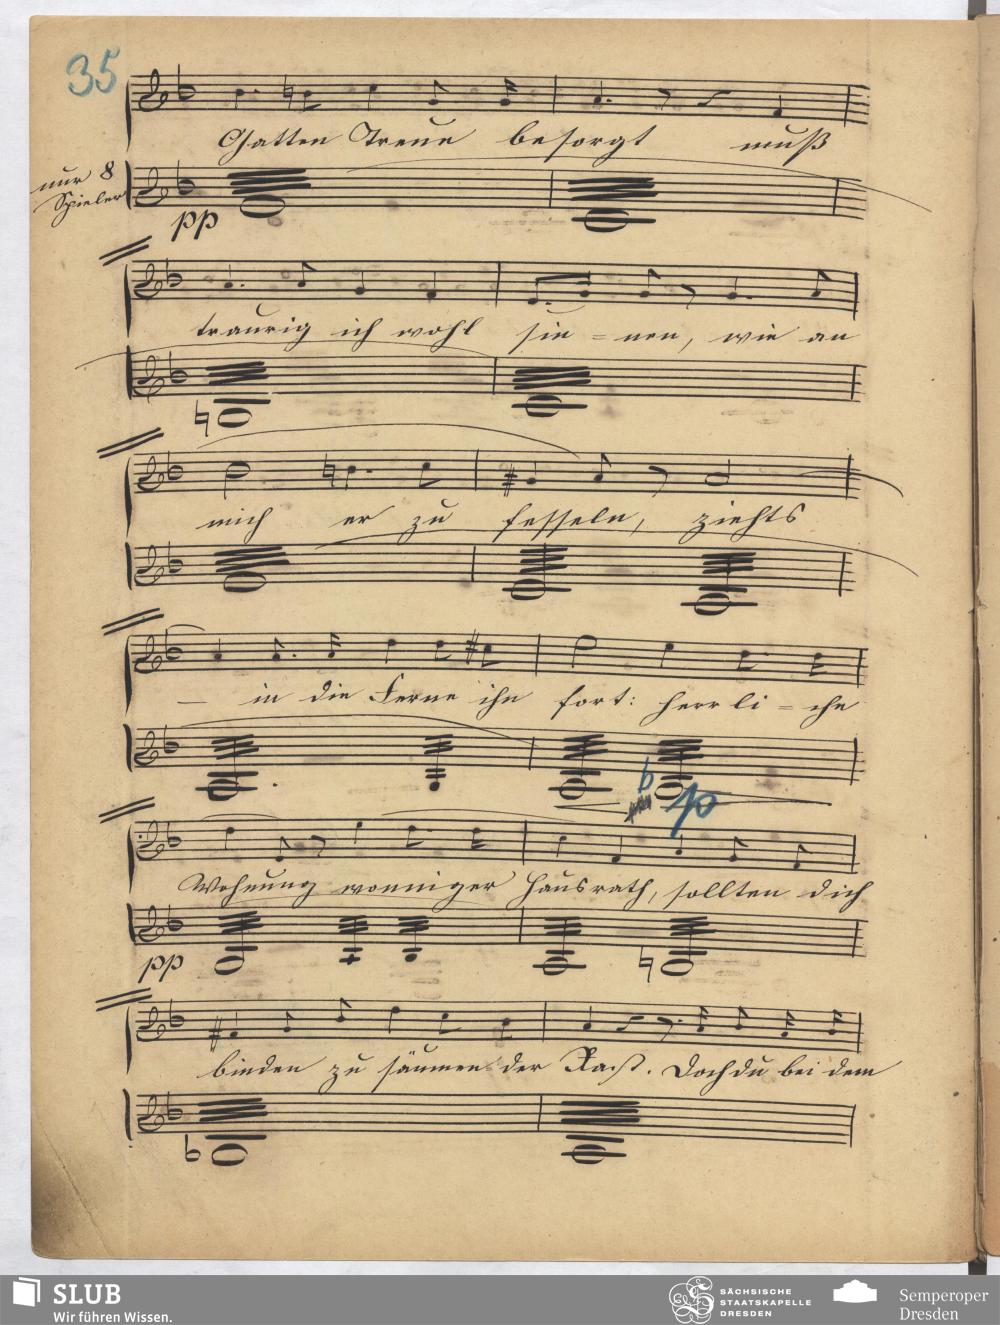 35
Gatten Treue besorgt muß
nur 8
Spieler
pp
traurig ich wohl sin=nen, wie an
mich er zu fesseln, ziehts
— in die Ferne ihn fort: herrli=che
p
Wohnung wonniger Hausrath, sollten dich
pp
binden zu säumen der Rast. Doch du bei dem
SLUB
Wir führen Wissen.
SÄCHSISCHE
STAATSKAPELLE
DRESDEN
Semperoper
Dresden